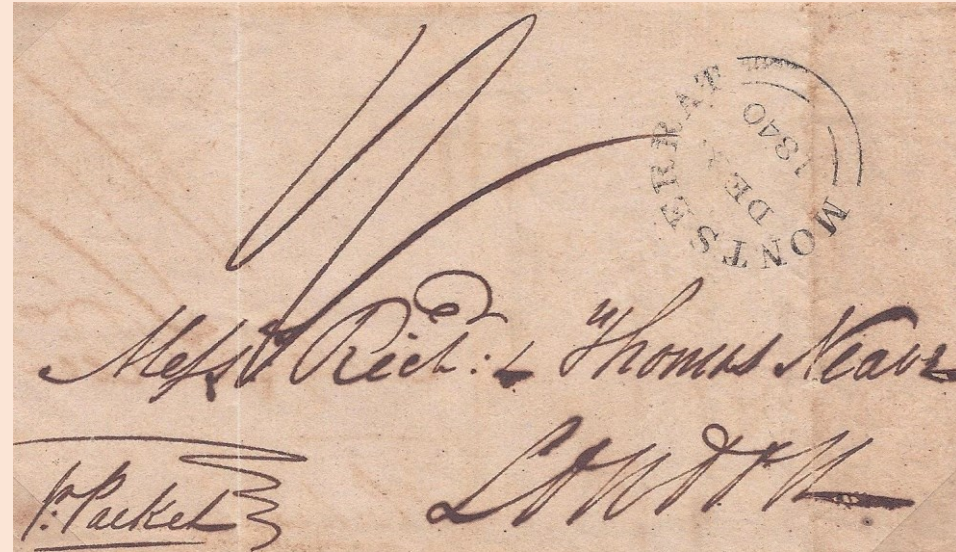 MONTSERRAT
DE
1840
Mess.rs Rich.d & Thomas Neave
London
pr. Packet